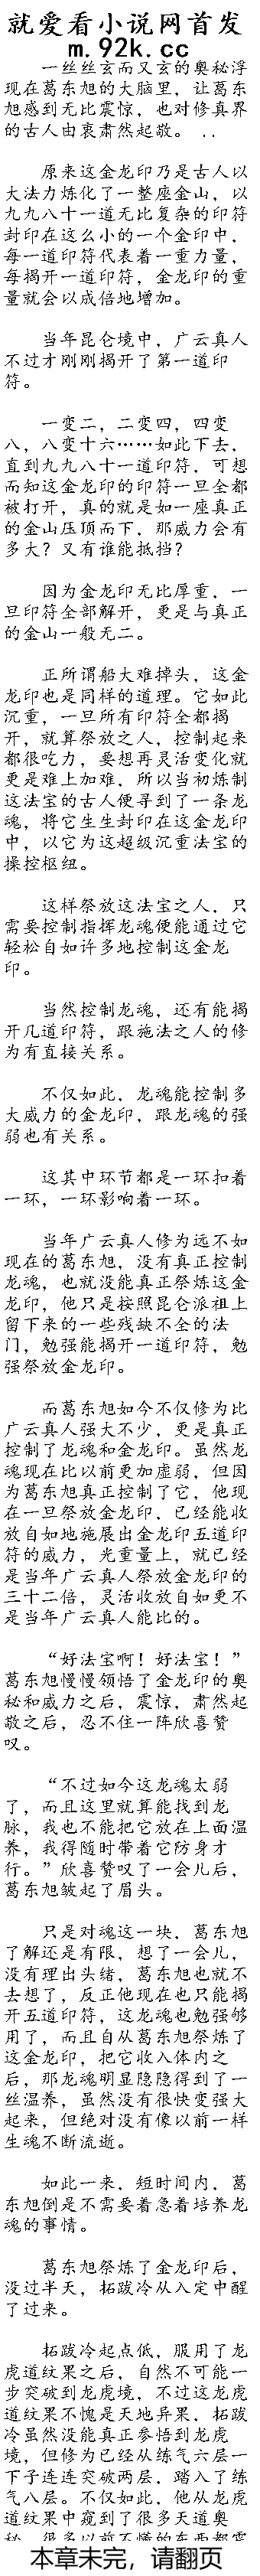 就爱看小说网首发
m.92k.cc
一丝丝玄而又玄的奥秘浮
现在葛东旭的大脑里，让葛东
旭感到无比震惊，也对修真界
的古人由衷肃然起敬。 ..
原来这金龙印乃是古人以
大法力炼化了一整座金山，以
九九八十一道无比复杂的印符
封印在这么小的一个金印中，
每一道印符代表着一重力量，
每揭开一道印符，金龙印的重
量就会以成倍地增加。
当年昆仑境中，广云真人
不过才刚刚揭开了第一道印
符。
一变二，二变四，四变
八，八变十六……如此下去，
直到九九八十一道印符，可想
而知这金龙印的印符一旦全都
被打开，真的就是如一座真正
的金山压顶而下，那威力会有
多大？又有谁能抵挡？
因为金龙印无比厚重，一
旦印符全部解开，更是与真正
的金山一般无二。
正所谓船大难掉头，这金
龙印也是同样的道理。它如此
沉重，一旦所有印符全都揭
开，就算祭放之人，控制起来
都很吃力，要想再灵活变化就
更是难上加难，所以当初炼制
这法宝的古人便寻到了一条龙
魂，将它生生封印在这金龙印
中，以它为这超级沉重法宝的
操控枢纽。
这样祭放这法宝之人，只
需要控制指挥龙魂便能通过它
轻松自如许多地控制这金龙
印。
当然控制龙魂，还有能揭
开几道印符，跟施法之人的修
为有直接关系。
不仅如此，龙魂能控制多
大威力的金龙印，跟龙魂的强
弱也有关系。
这其中环节都是一环扣着
一环，一环影响着一环。
当年广云真人修为远不如
现在的葛东旭，没有真正控制
龙魂，也就没能真正祭炼这金
龙印，他只是按照昆仑派祖上
留下来的一些残缺不全的法
门，勉强能揭开一道印符，勉
强祭放金龙印。
而葛东旭如今不仅修为比
广云真人强大不少，更是真正
控制了龙魂和金龙印。虽然龙
魂现在比以前更加虚弱，但因
为葛东旭真正控制了它，他现
在一旦祭放金龙印，已经能收
放自如地施展出金龙印五道印
符的威力，光重量上，就已经
是当年广云真人祭放金龙印的
三十二倍，灵活收放自如更不
是当年广云真人能比的。
“好法宝啊！好法宝！”
葛东旭慢慢领悟了金龙印的奥
秘和威力之后，震惊，肃然起
敬之后，忍不住一阵欣喜赞
叹。
“不过如今这龙魂太弱
了，而且这里就算能找到龙
脉，我也不能把它放在上面温
养，我得随时带着它防身才
行。”欣喜赞叹了一会儿后，
葛东旭皱起了眉头。
只是对魂这一块，葛东旭
了解还是有限，想了一会儿，
没有理出头绪，葛东旭也就不
去想了，反正他现在也只能揭
开五道印符，这龙魂也勉强够
用了，而且自从葛东旭祭炼了
这金龙印，把它收入体内之
后，那龙魂明显隐隐得到了一
丝温养，虽然没有很快变强大
起来，但绝对没有像以前一样
生魂不断流逝。
如此一来，短时间内，葛
东旭倒是不需要着急着培养龙
魂的事情。
葛东旭祭炼了金龙印后，
没过半天，拓跋冷从入定中醒
了过来。
拓跋冷起点低，服用了龙
虎道纹果之后，自然不可能一
步突破到龙虎境，不过这龙虎
道纹果不愧是天地异果，拓跋
冷虽然没能真正参悟到龙虎
境，但修为已经从炼气六层一
下子连连突破两层，踏入了练
气八层。不仅如此，他从龙虎
道纹果中窥到了很多天道奥
秘，很多以前不懂的东西都需
本章未完，请翻页